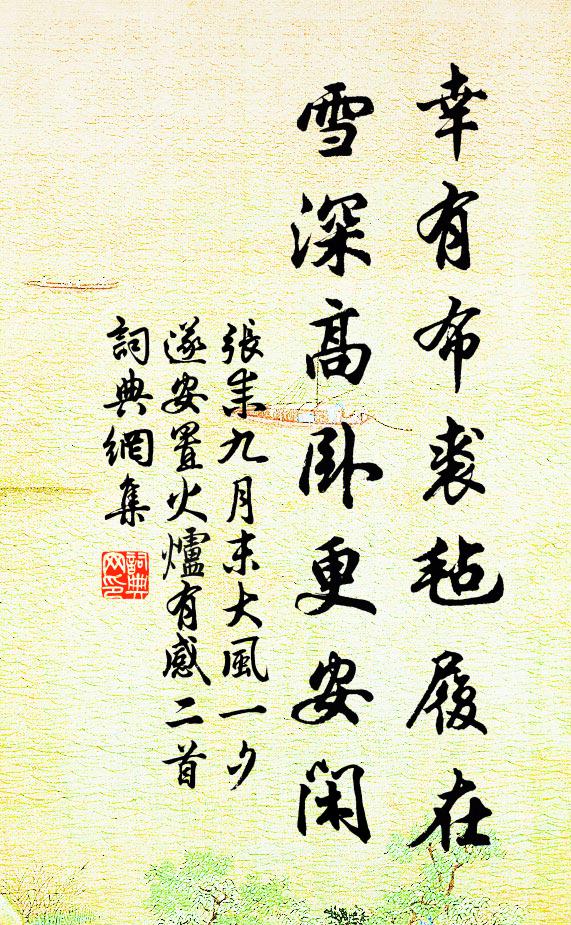 幸有布裘毡履在
雪深高臥更安閑
張耒九月末大風一夕
遂安置火爐有感二首
詞典網集
詞典
网印